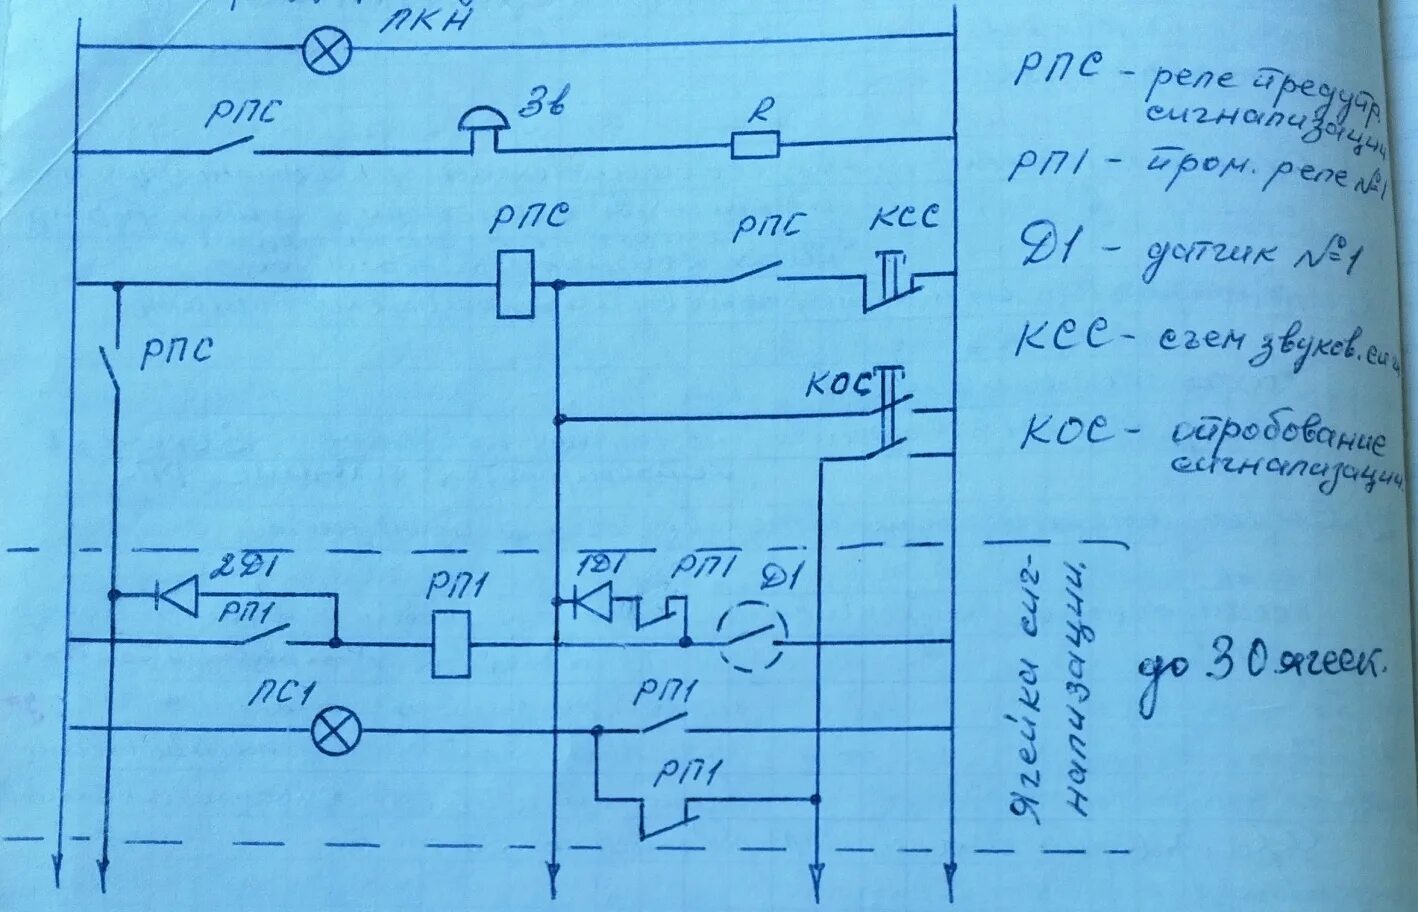 ЛКН
РПС
Зв
R
РПС
РПС
КСС
РПС
КОС
2Д1
РП1
РП1
1Д1
РП1
Д1
ЛС1
РП1
РП1
РПС - реле предупр.
сигнализации
РП1 - пром. реле №1
Д1 - датчик №1
КСС - съем звуков. сиг
КОС - опробование
сигнализации.
Ячейка сиг-
нализации.
до 30 ячеек.